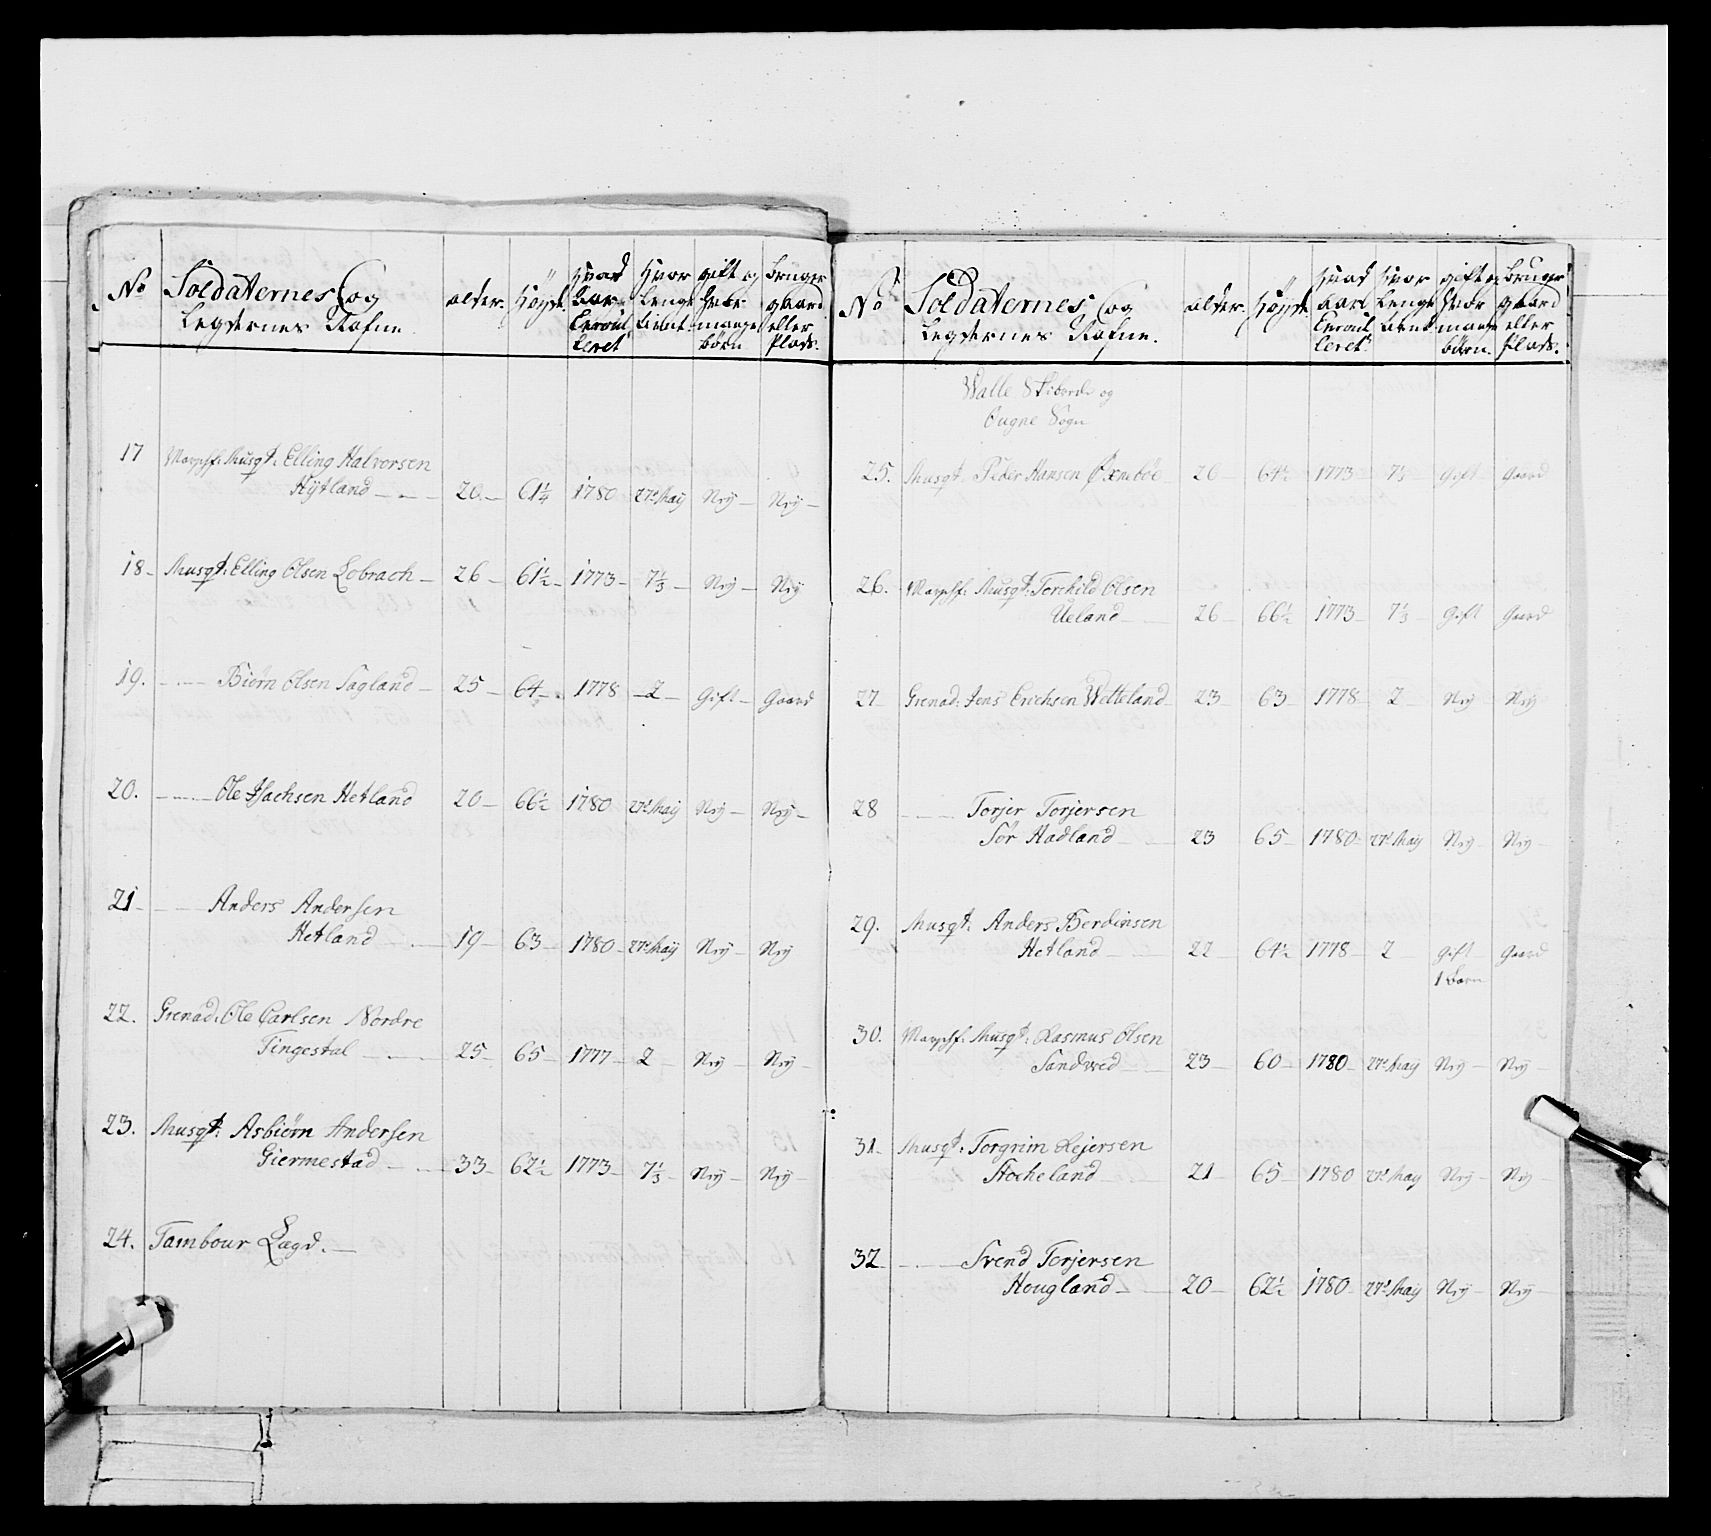 No Soldaternes og Legdernes Nafne. alder. Höyde. Hvad Aar Enroul leret Hvor Lenge tient gift og Hvor mange börn bruger gaard eller Plads.
17 Marchf: Musqt: Elling Halvorsen
Hÿtland — 20 — 61¼ 1780 27de Maÿ Nej — Nej —
18 — Musqt: Elling Olsen Lobrach — 26 — 61½ — 1773 — 7⅓ — Nej — Nej
19. — Biörn Olsen Sagland — 25 — 64 — 1778 — 2 — Gift — Gaard
20. — Ole Isachsen Hetland 20 — 66½ 1780 27de Maÿ Nej — Nej —
21 — Anders Andersen
Hetland — 19 — 63 — 1780 — 27de Maÿ Nej — Nej
22. Grenad: Ole Carlsen Nordre
Tingestal — 25 — 65 — 1777 — 2 — Nej — Nej —
23. Musqt: Asbiörn Andersen
Giermestad — 33 — 62½ 1773 — 7⅓ — Nej — Nej —
24. Tambour Lægd. —
No Soldaternes og Legdernes Nafne. alder. Höyde. Hvad aar Enroul leret Hvor Lenge tient gift og Hvor mange börn. bruger gaard eller Plads.
Walle Sk og
Sogn
25. Musqt. Peder Hansen Øxneböe 26 — 64½ — 1773 — 7⅓ — Gift — Gaard
26. Marchf: Musqt: Torchild Olsen
Ueland — 26 — 66½ 1773 — 7⅓ — Gift Gaard
27 — Grenad: Jens Erichsen Wetteland 23 — 63 — 1778 — 2 — Nej Nej
28 — Torjer Torjersen
Sör Hadland — 23 65 — 1780 — 27de Maÿ Nej — Nej —
29. Musqt: Anders Berdinsen
Hetland — 22 — 64½ — 1778 — 2 — Gift — Gaard
1 Barn
30. Marchf: Musqt: Rasmus Olsen
Sandved — 23 — 60 — 1780 — 27de Maÿ Nej — Nej —
31 — Musqt: Torgrim Rejersen
Stocheland — 21 — 65 — 1780 27de Maÿ Nej — Nej —
32 — Svend Torjersen
Hougland — 20 — 62½ 1780 — 27de Maÿ Nej — Nej —